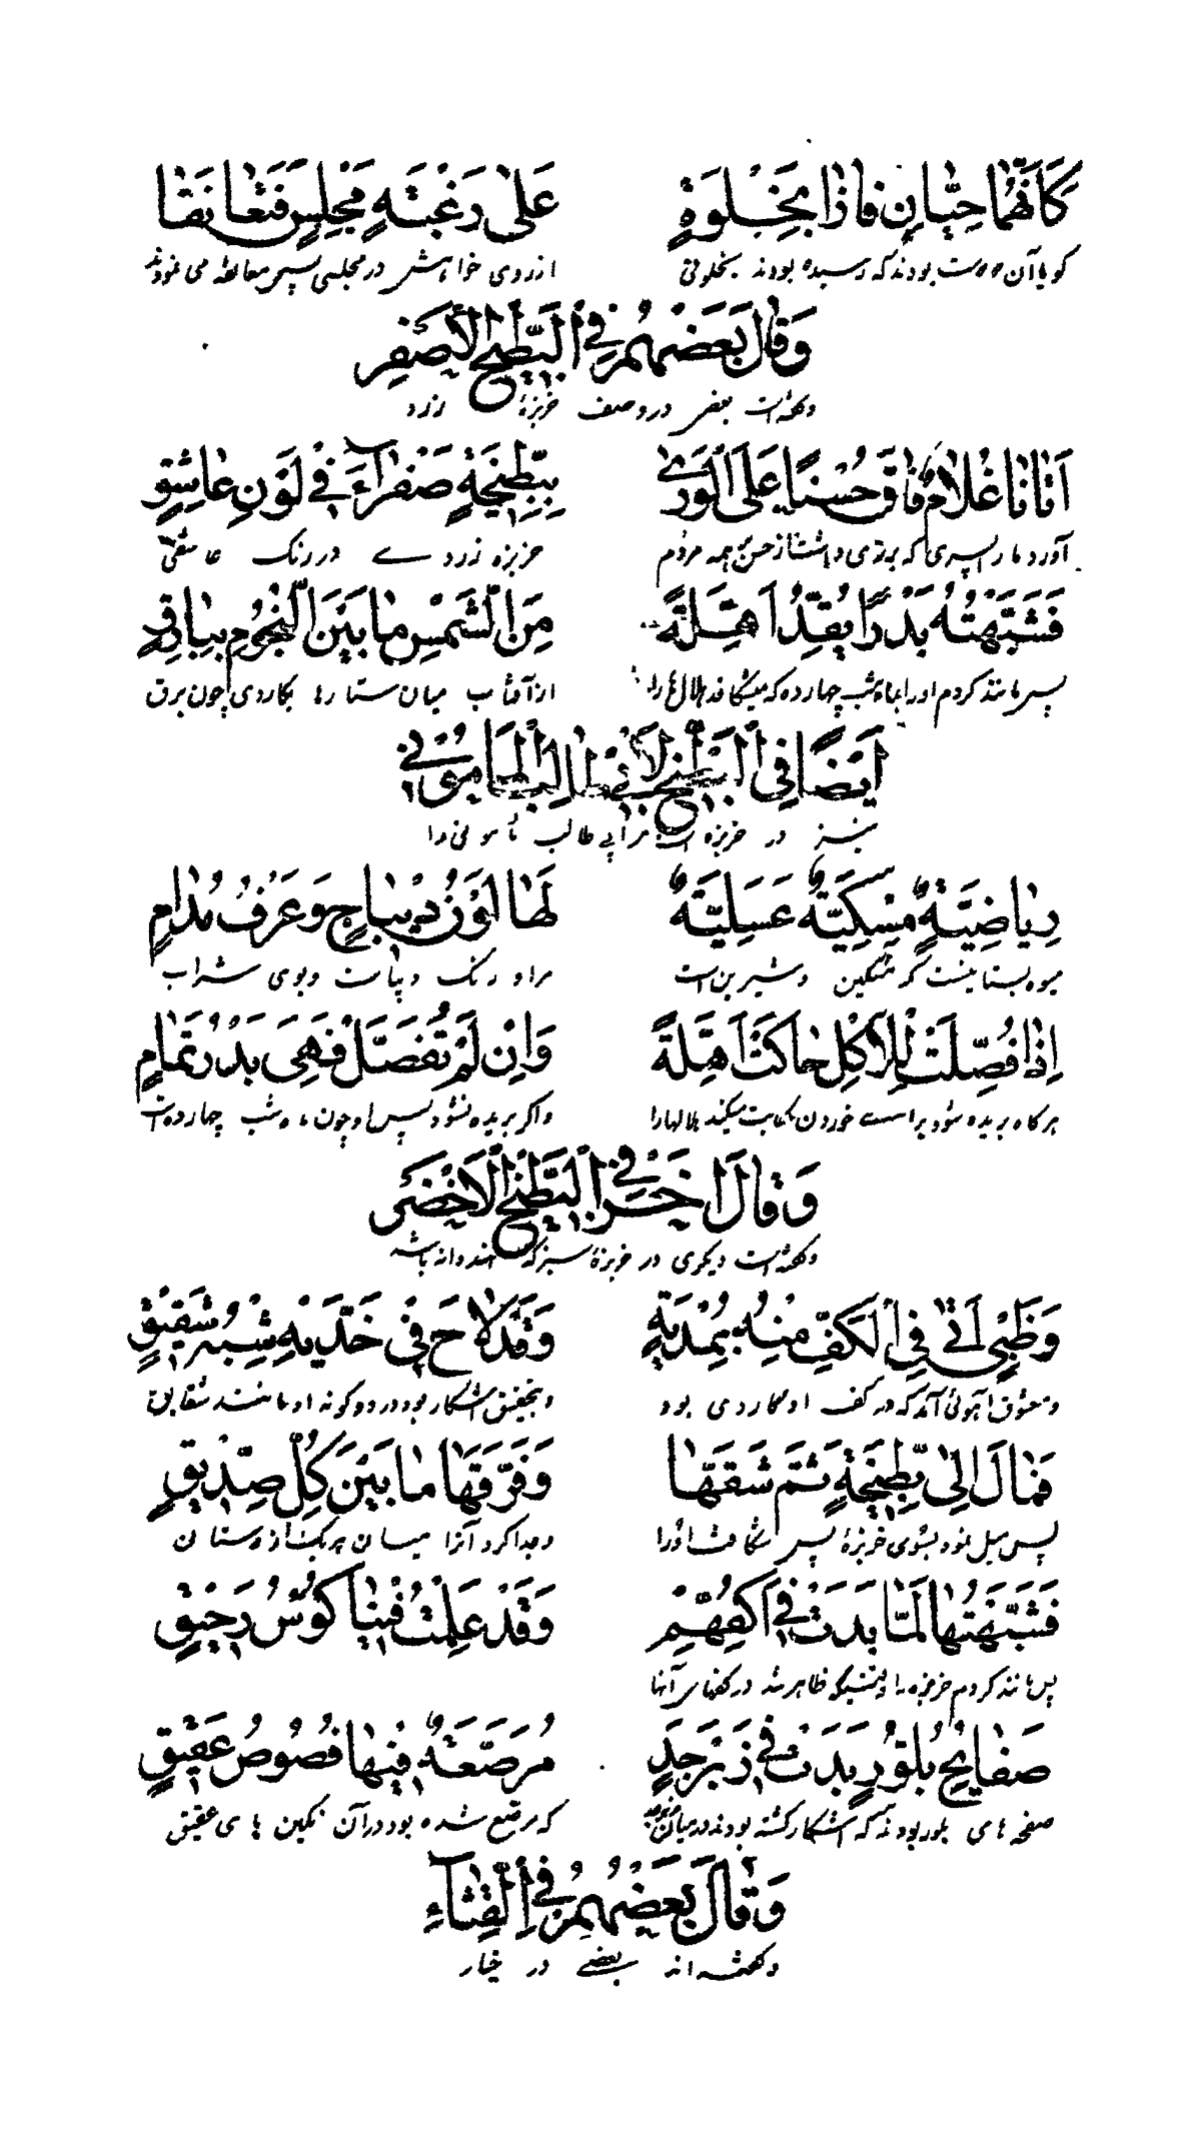 كَأَنَّهُمَا حِبَّانِ فَازَا بِخَلْوَةٍ عَلٰى رَغْبَةٍ مَجْلِسٍ فَتَعَانَقَا
گویا آن دوست بودند که رسیده بودند بخلوتی از روی خواهش در مجلسی پس معانقه می نمودند
وَقَالَ بَعْضُهُمْ فِي الْبِطِّيخِ الْأَصْفَرِ
و گفته است بعضی در وصف خربزهٔ زرد
اَتَانَا غُلَامٌ فَاقَ حُسْنًا عَلَى الْوَرٰى بِبِطِّيخَةٍ صَفْرَآءَ فِي لَوْنِ عَاشِقٍ
آورد ما را پسری که برتری داشت از حسن بر همه مردم خربزه زردے در رنگ عاشقی
فَشَبَّهْتُهُ بَدْرًا يَقُدُّ اَهِلَّةً مِنَ الشَّمْسِ مَا بَيْنَ النُّجُومِ بِبَارِقٍ
پس مانند کردم او را بماه شب چهارده که میشکافد هلال ها را از آفتاب میان ستارها بکاردی چون برق
اَيْضًا فِي الْبِطِّيخِ لِأَبِي طَالِبِ الْمَامُونِي
نیز در خربزه است مر ابی طالب مامونی را
رِيَاضِيَّةٌ مِسْكِيَّةٌ عَسَلِيَّةٌ لَهَا لَوْنُ دِيبَاجٍ وَعَرْفُ مُدَامٍ
میوه بستانیست که مشکین و شیرین است مر او رنگ دیباست و بوی شراب
اِذَا فُصِّلَتْ لِلْاَكْلِ حَاكَتْ اَهِلَّةً وَاِنْ لَمْ تُفَصَّلْ فَهِيَ بَدْرُ تَمَامٍ
هرگاه بریده شود براے خوردن حکایت میکند هلالها را و اگر بریده نشود پس او چون ماه شب چهارده است
وَقَالَ اٰخَرُ فِي الْبِطِّيخِ الْاَخْضَرِ
و گفته است دیگری در خربزهٔ سبز که هندوانه باشد
وَظَبْيٍ اَتٰى فِي الْكَفِّ مِنْهُ بِمُدْيَةٍ وَقَدْ لَاحَ فِي خَدَّيْهِ شِبْهُ شَقِيقٍ
و معشوق آهوئی آمد که در کف او کاردی بود و بتحقیق آشکار بود در دو گونه او مانند شقایق
فَمَالَ اِلٰى بِطِّيخَةٍ ثُمَّ شَقَّهَا وَفَرَّقَهَا مَا بَيْنَ كُلِّ صِدِّيقٍ
پس میل نمود بسوی خربزهٔ پس شکافت او را و جدا کرد آنرا میان هر یک از دوستان
فَشَبَّهْتُهَا لَمَّا بَدَتْ فِي اَكُفِّهِمْ وَقَدْ عَلِمَتْ فِينَا كُؤُسُ رَحِيقٍ
پس مانند کردم خربزه را وقتیکه ظاهر شد در کفهای آنها
صَفَايِحُ بَلُّورٍ بَدَتْ فِي زَبَرْجَدٍ مُرَصَّعَةٌ فِيهَا فُصُوصُ عَقِيقٍ
صفحه های بلور بودند که آشکار گشته بودند در میان که مرصع شده بود در آن نگین های عقیق
وَقَالَ بَعْضُهُمْ فِي الْقِثَّآءِ
و گفته اند بعضے در خیار